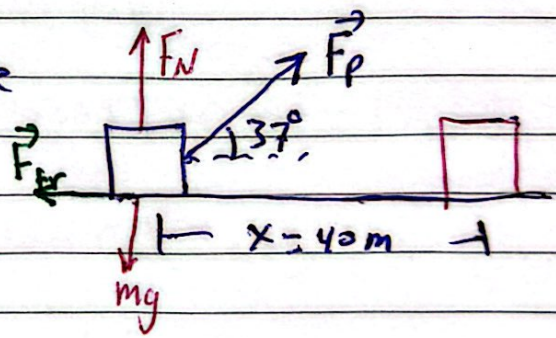 F_N
F_P
37°
F_fr
x = 40 m
mg